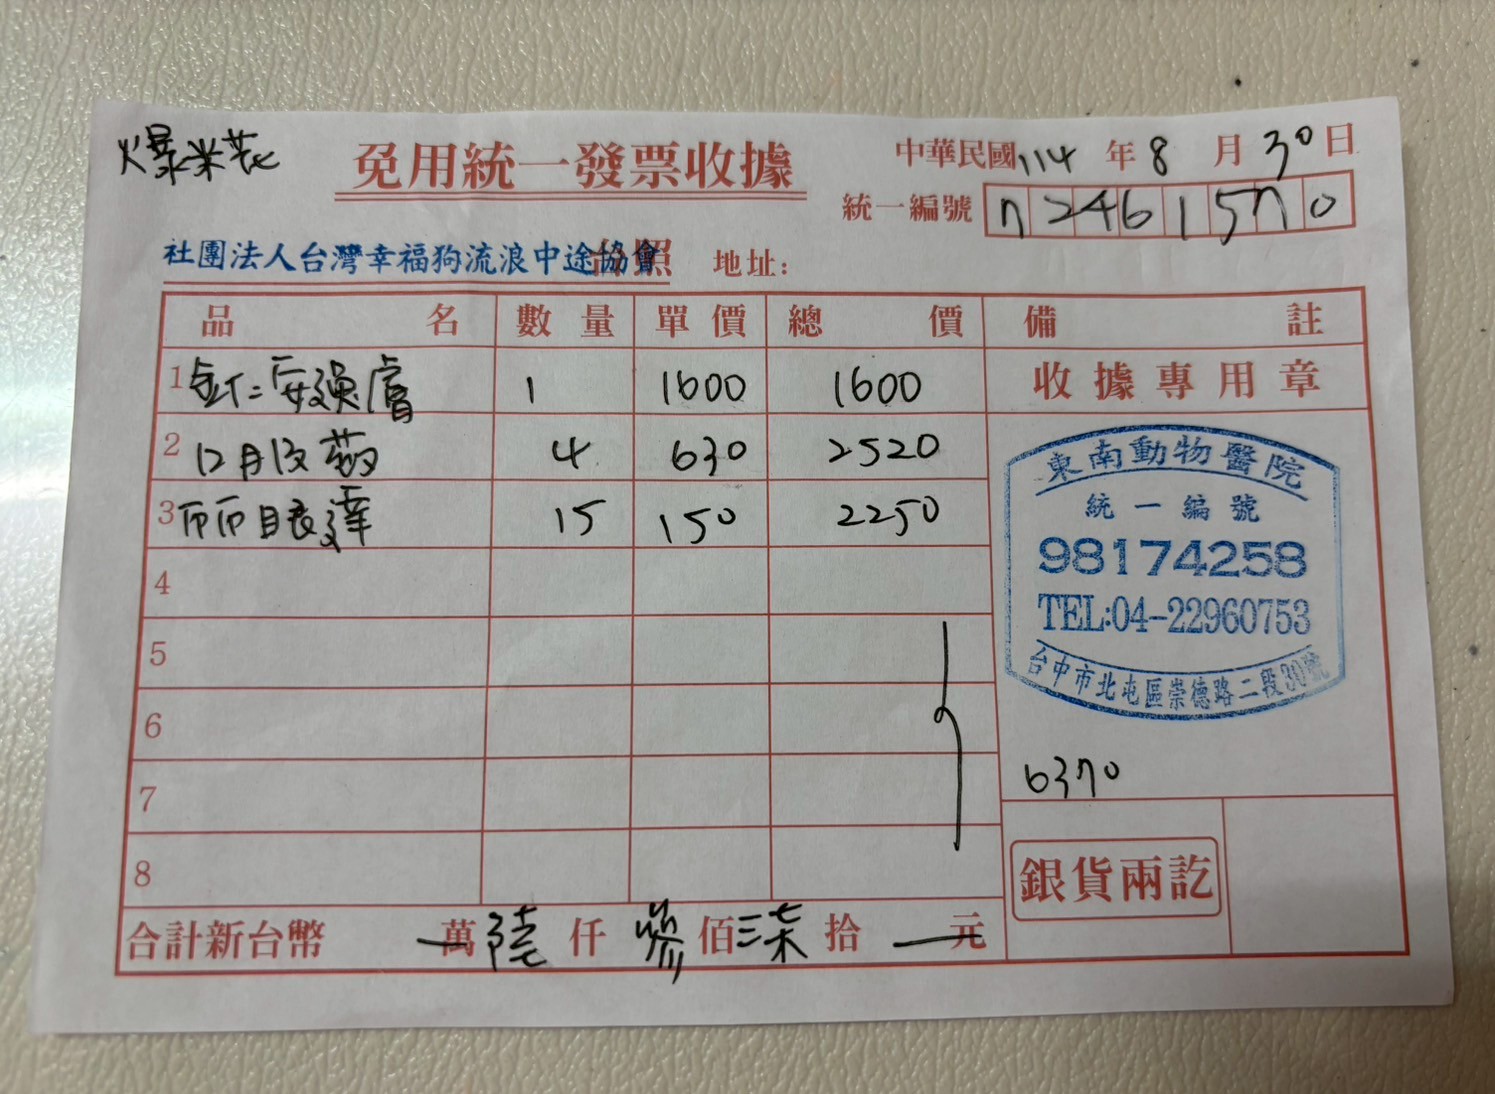 爆米花
免用統一發票收據
中華民國114年8月30日
統一編號 72461570
社團法人台灣幸福狗流浪中途協會 台照 地址：
品名 數量 單價 總價 備註
1 針=安強膚 1 1600 1600 收據專用章
2 12月份藥 4 630 2520
3 15 150 2250
4
5
6
7
8
東南動物醫院
統一編號
98174258
TEL:04-22960753
台中市北屯區崇德路二段30號
6370
銀貨兩訖
合計新台幣 萬陸仟參佰柒拾元